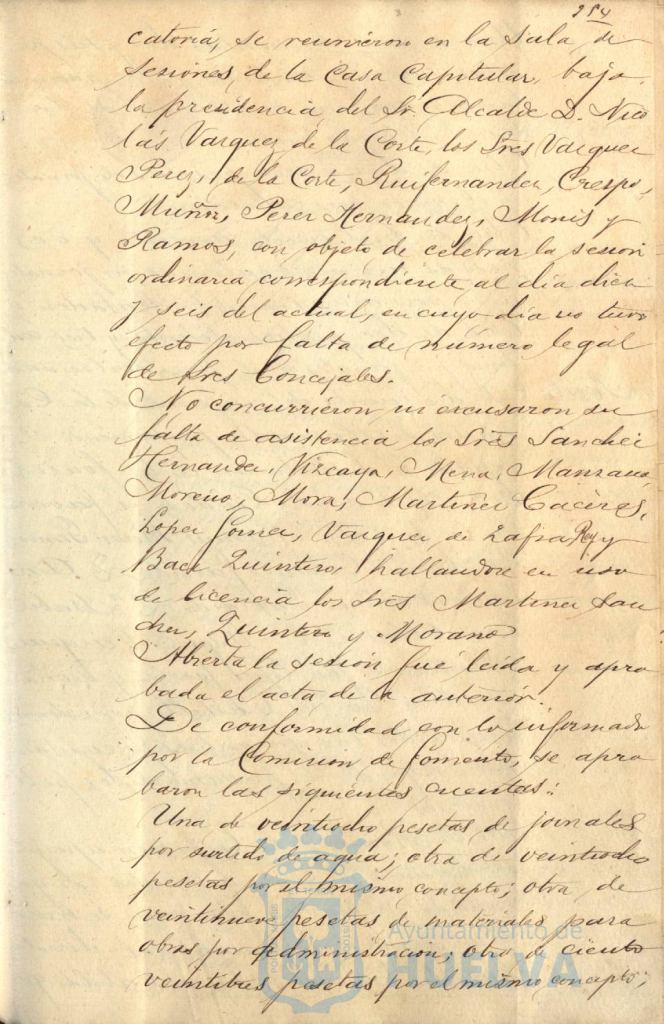 254
catoria, se reunieron en la Sala de
sesiones, de la Casa Capitular, bajo
la presidencia del Sr. Alcalde D. Nico
lás Vazquez de la Corte, los Sres Vazquez
Perez, de la Corte, Ruifernandez, Crespo,
Muñoz, Perez Hernandez, Monis y
Ramos, con objeto de celebrar la sesion
ordinaria correspondiente al dia diez
y seis del actual, en cuyo dia no tuvo
efecto por falta de número legal
de Sres Concejales.
No concurrieron ni escusaron su
falta de asistencia los Sres Sanchez
Hernandez, Vizcaya, Mena, Manzano
Moreno, Mora, Martinez Caceres,
Lopez Gomez, Vazquez de Zafra, Rey y
Baez Quintero, hallandose en uso
de licencia los Sres Martinez San
chez, Quintero y Morano
Abierta la sesión fué leida y apro
bada el acta de la anterior.
De conformidad con lo informado
por la Comision de Fomento, se apro
baron las siguientes cuentas:
Una de veintiocho pesetas de jornales
por surtido de agua; otra de veintiocho
pesetas por el mismo concepto; otra de
veintinueve pesetas de materiales para
obras por administracion; otra de ciento
veintitres pesetas por el mismo concepto;
Ayuntamiento de
HUELVA